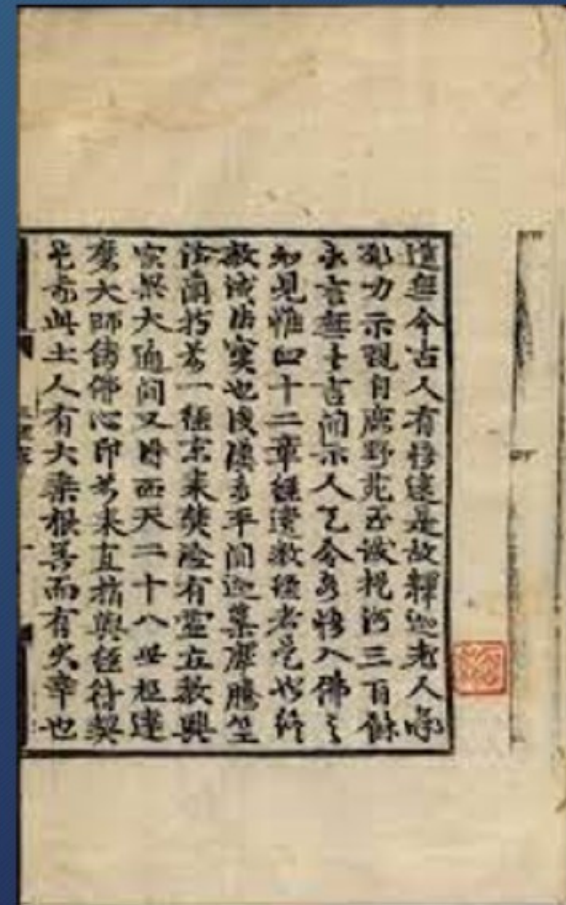 道無今古人有悟迷是故釋迦老人
力示現自鹿野苑至跋提河三百餘
言無言言開示人天令悟入佛之
知見惟四十二章經遺教經者是始終
教誡法寶也後漢永平間迦葉摩騰竺
法蘭持第一經東來焚驗有靈立教興
宗梁大通間又得西天二十八世祖達
磨大師傳佛心印來直指與經符契
奇此土人有大乘根善而有大幸也